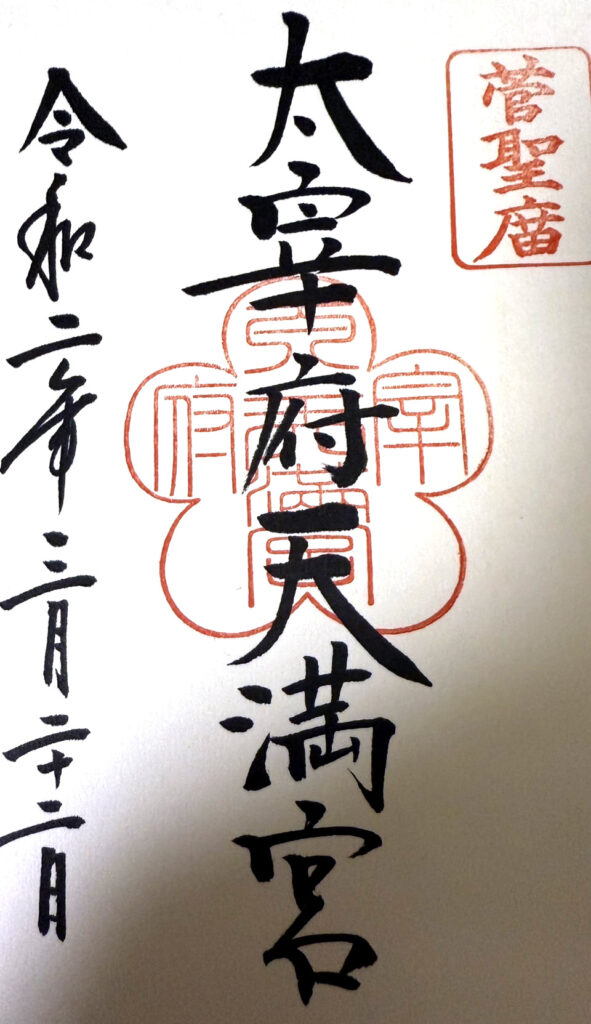 菅聖廟
太宰府天満宮
令和二年三月二十二日